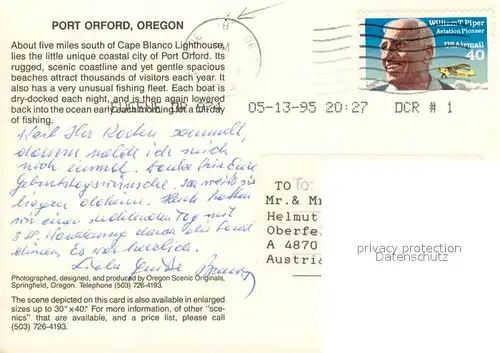 PORT ORFORD, OREGON
About five miles south of Cape Blanco Lighthouse,
lies the little unique coastal city of Port Orford. Its
rugged, scenic coastline and yet gentle spacious
beaches attract thousands of visitors each year. It
also has a very unusual fishing fleet. Each boat is
dry-docked each night, and is then again lowered
back into the ocean early each morning for a full day
of fishing.
William T. Piper
Aviation Pioneer
USAirmail
40
EUGENE OR 05-13-95 20:27 DCR # 1
Weil Ihr Karten sammelt,
darum melde ich mich
noch einmal. Danke für Eure
Geburtstagswünsche.
Heute hatten
wir einen Tag mit
Wanderung durch
Es war herrlich.
Liebe Grüße
TO To:
Mr. & M
Helmut
Oberfe
A 4870
Austria
privacy protection
Datenschutz
Photographed, designed, and produced by Oregon Scenic Originals,
Springfield, Oregon. Telephone (503) 726-4193.
The scene depicted on this card is also available in enlarged
sizes up to 30"x40." For more information, of other "sce-
nics" that are available, and a price list, please call
(503) 726-4193.